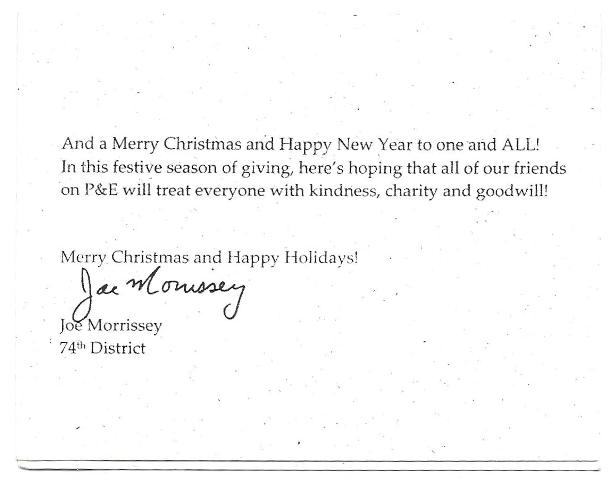 And a Merry Christmas and Happy New Year to one and ALL!
In this festive season of giving, here's hoping that all of our friends
on P&E will treat everyone with kindness, charity and goodwill!
Merry Christmas and Happy Holidays!
Joe Morrissey
Joe Morrissey
74th District